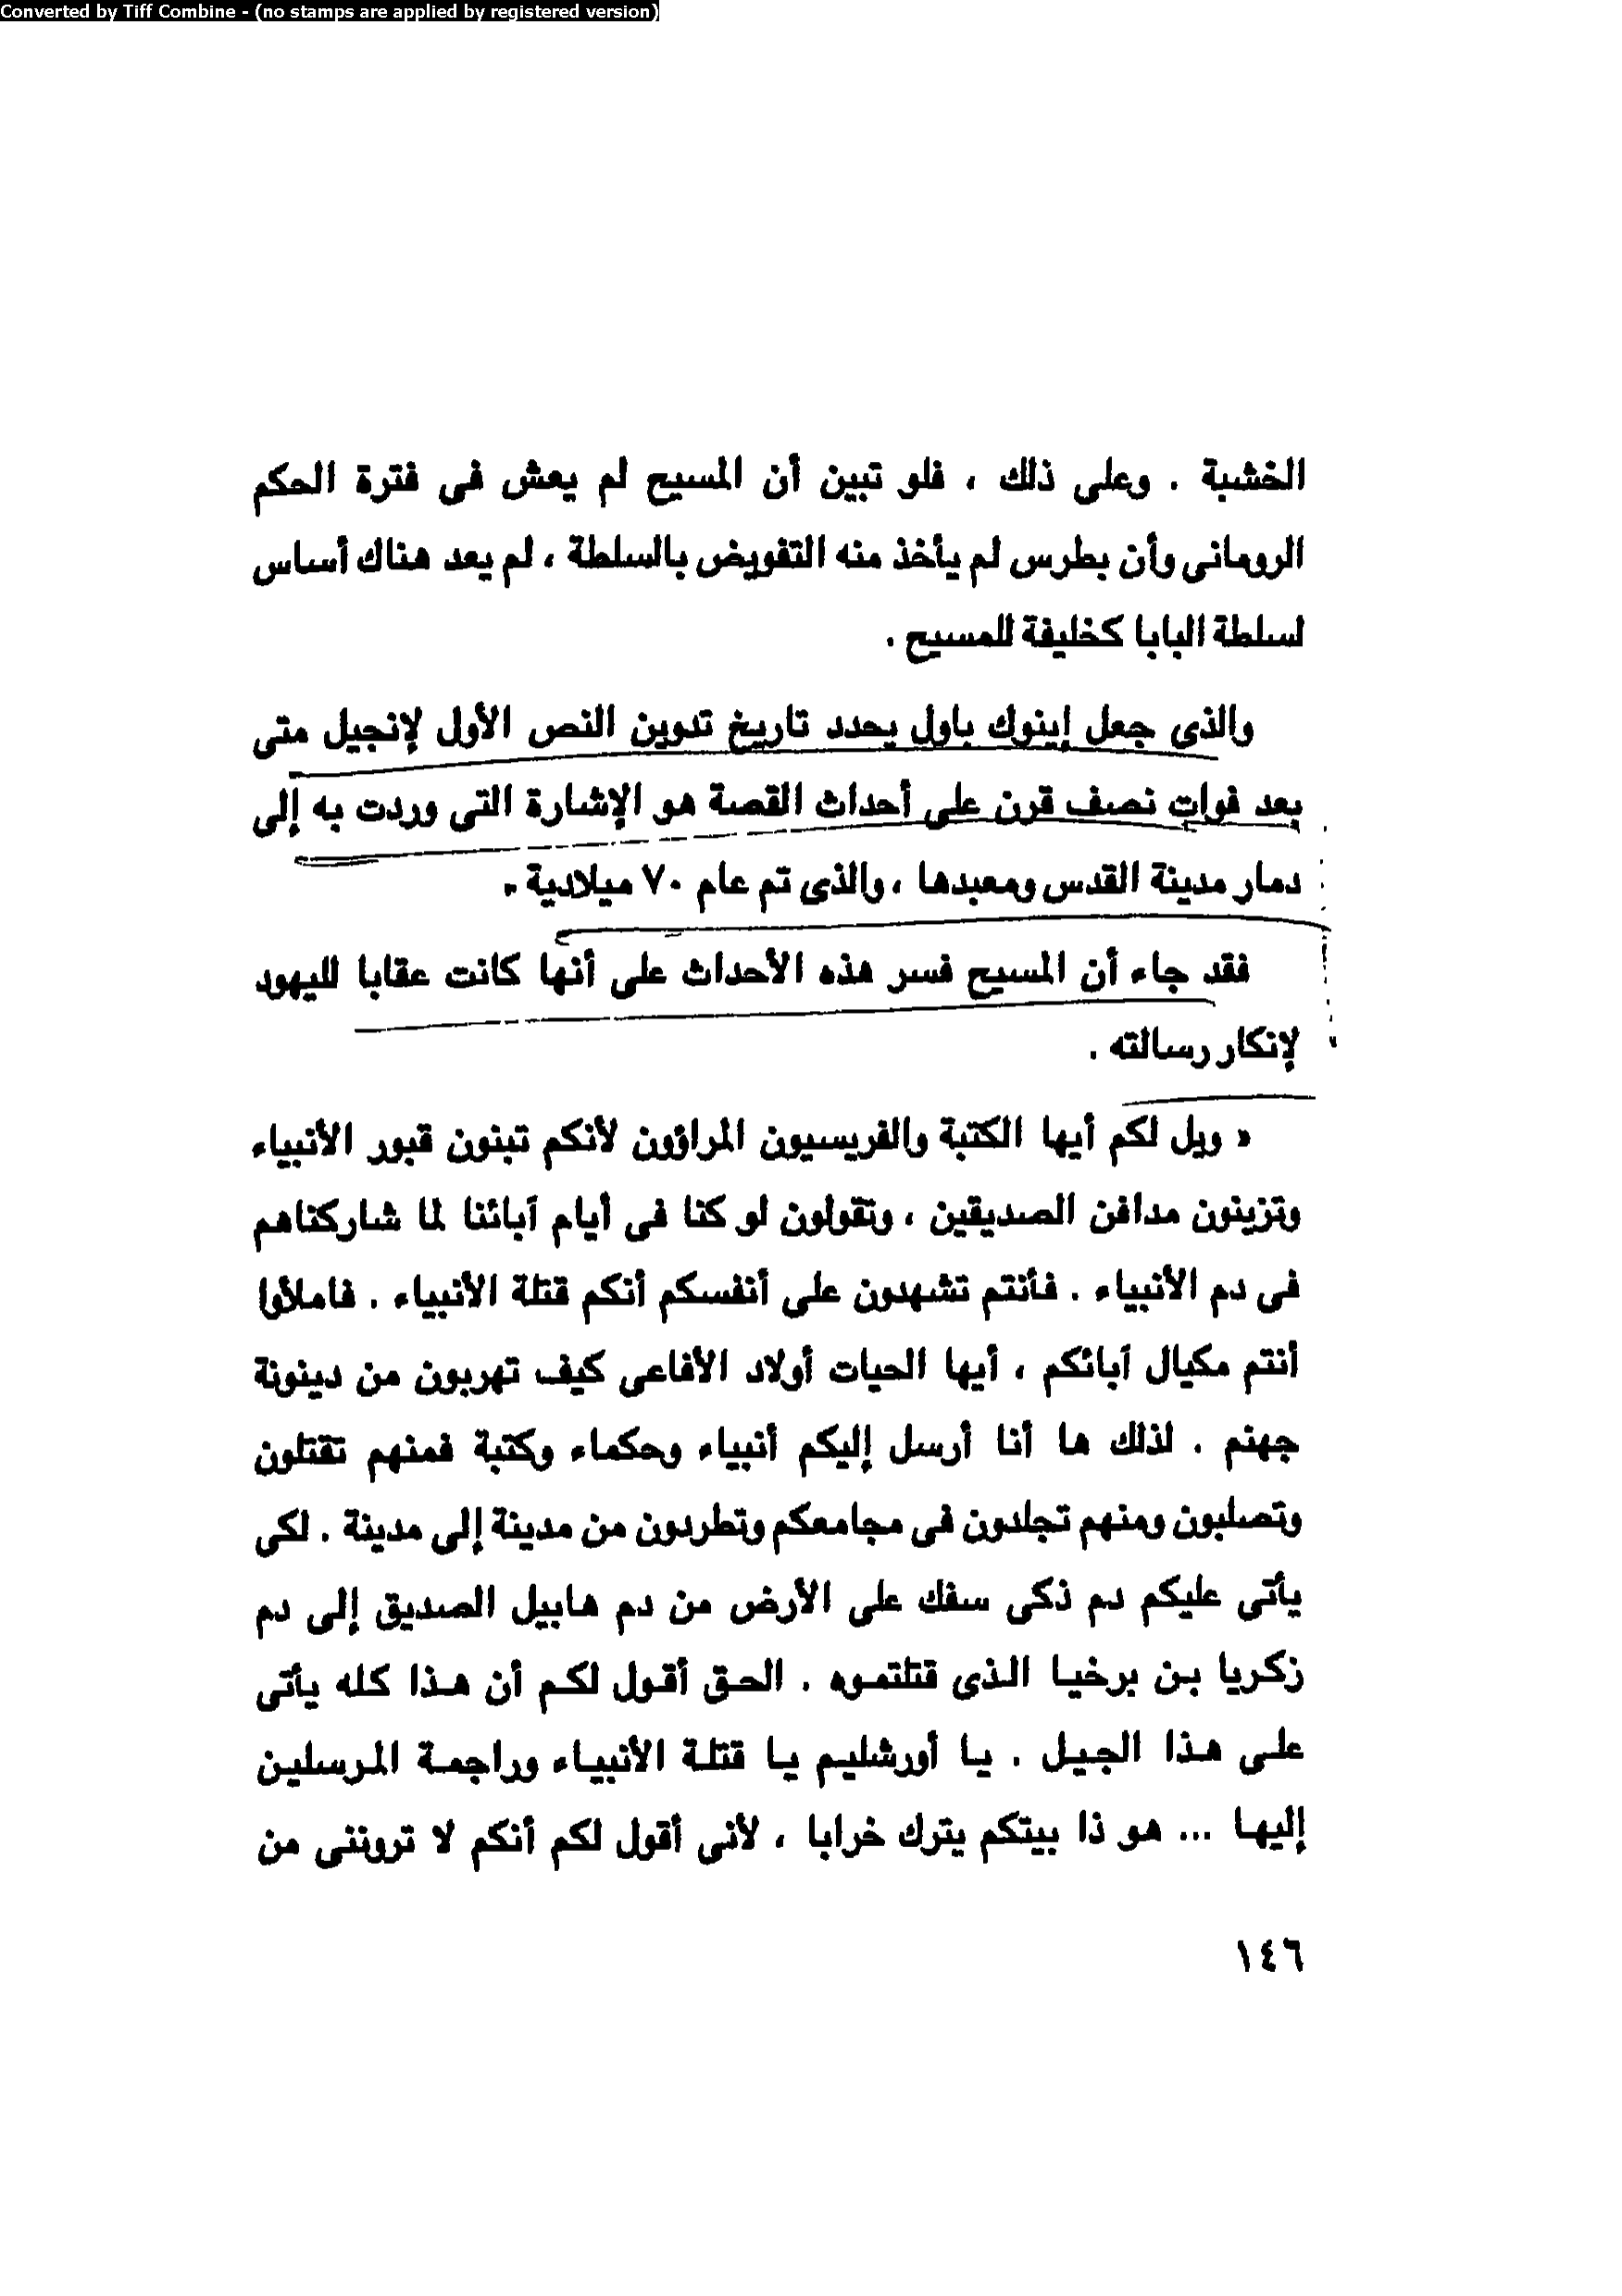 Converted by Tiff Combine - (no stamps are applied by registered version)
الخشبة . وعلى ذلك ، فلو تبين أن المسيح لم يعش فى فترة الحكم
الرومانى وأن بطرس لم يأخذ منه التفويض بالسلطة ، لم يعد هناك أساس
لسلطة البابا كخليفة للمسيح .
والذى جعل إينوك باول يحدد تاريخ تدوين النص الأول لإنجيل متى
بعد فوات نصف قرن على أحداث القصة هو الإشارة التى وردت به إلى
دمار مدينة القدس ومعبدها ، والذى تم عام ٧٠ ميلادية .
فقد جاء أن المسيح فسر هذه الأحداث على أنها كانت عقابا لليهود
لإنكار رسالته .
« ويل لكم أيها الكتبة والفريسيون المراؤون لأنكم تبنون قبور الأنبياء
وتزينون مدافن الصديقين ، وتقولون لو كنا فى أيام آبائنا لما شاركناهم
فى دم الأنبياء . فأنتم تشهدون على أنفسكم أنكم قتلة الأنبياء . فاملأوا
أنتم مكيال آبائكم ، أيها الحيات أولاد الأفاعى كيف تهربون من دينونة
جهنم . لذلك ها أنا أرسل إليكم أنبياء وحكماء وكتبة فمنهم تقتلون
وتصلبون ومنهم تجلدون فى مجامعكم وتطردون من مدينة إلى مدينة . لكى
يأتى عليكم دم ذكى سفك على الأرض من دم هابيل الصديق إلى دم
زكريا بن برخيا الذى قتلتموه . الحق أقول لكم أن هذا كله يأتى
على هذا الجيل . يا أورشليم يا قتلة الأنبياء وراجمة المرسلين
إليها ... هو ذا بيتكم يترك خرابا ، لأنى أقول لكم أنكم لا تروننى من
١٤٦